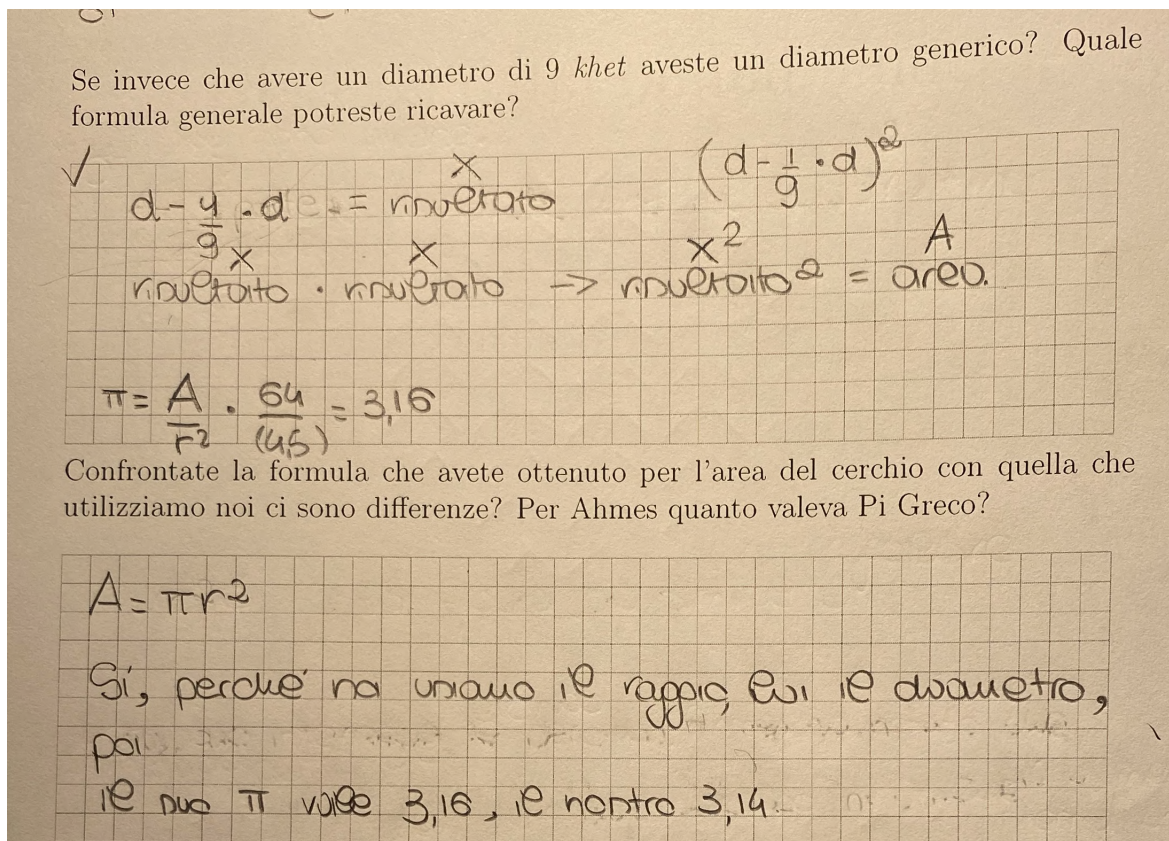 Se invece che avere un diametro di 9 khet aveste un diametro generico? Quale
formula generale potreste ricavare?
✓
x
(d - 1/9 · d)²
d - 4/9 · d = risultato
x x x² A
risultato · risultato -> risultato² = area.
π = A/r² · 64/(4,5) = 3,16
Confrontate la formula che avete ottenuto per l'area del cerchio con quella che
utilizziamo noi ci sono differenze? Per Ahmes quanto valeva Pi Greco?
A = πr²
Sì, perché noi usiamo il raggio, lui il diametro,
poi
il suo π vale 3,16, il nostro 3,14.